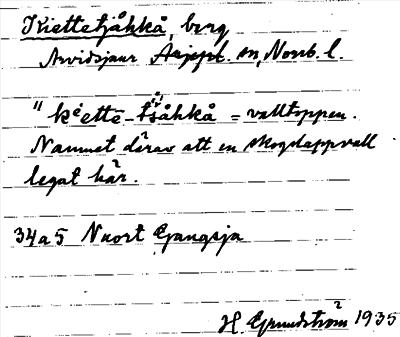 Kiettetjåhkå, berg
Arvidsjaur Arjepl. sn, Norrb. l.
"kēettē-tšåhkå = valltoppen.
Namnet därav att en skogslappvall
legat här.
34a5 Njaort Gjangsja
H. Grundström 1935